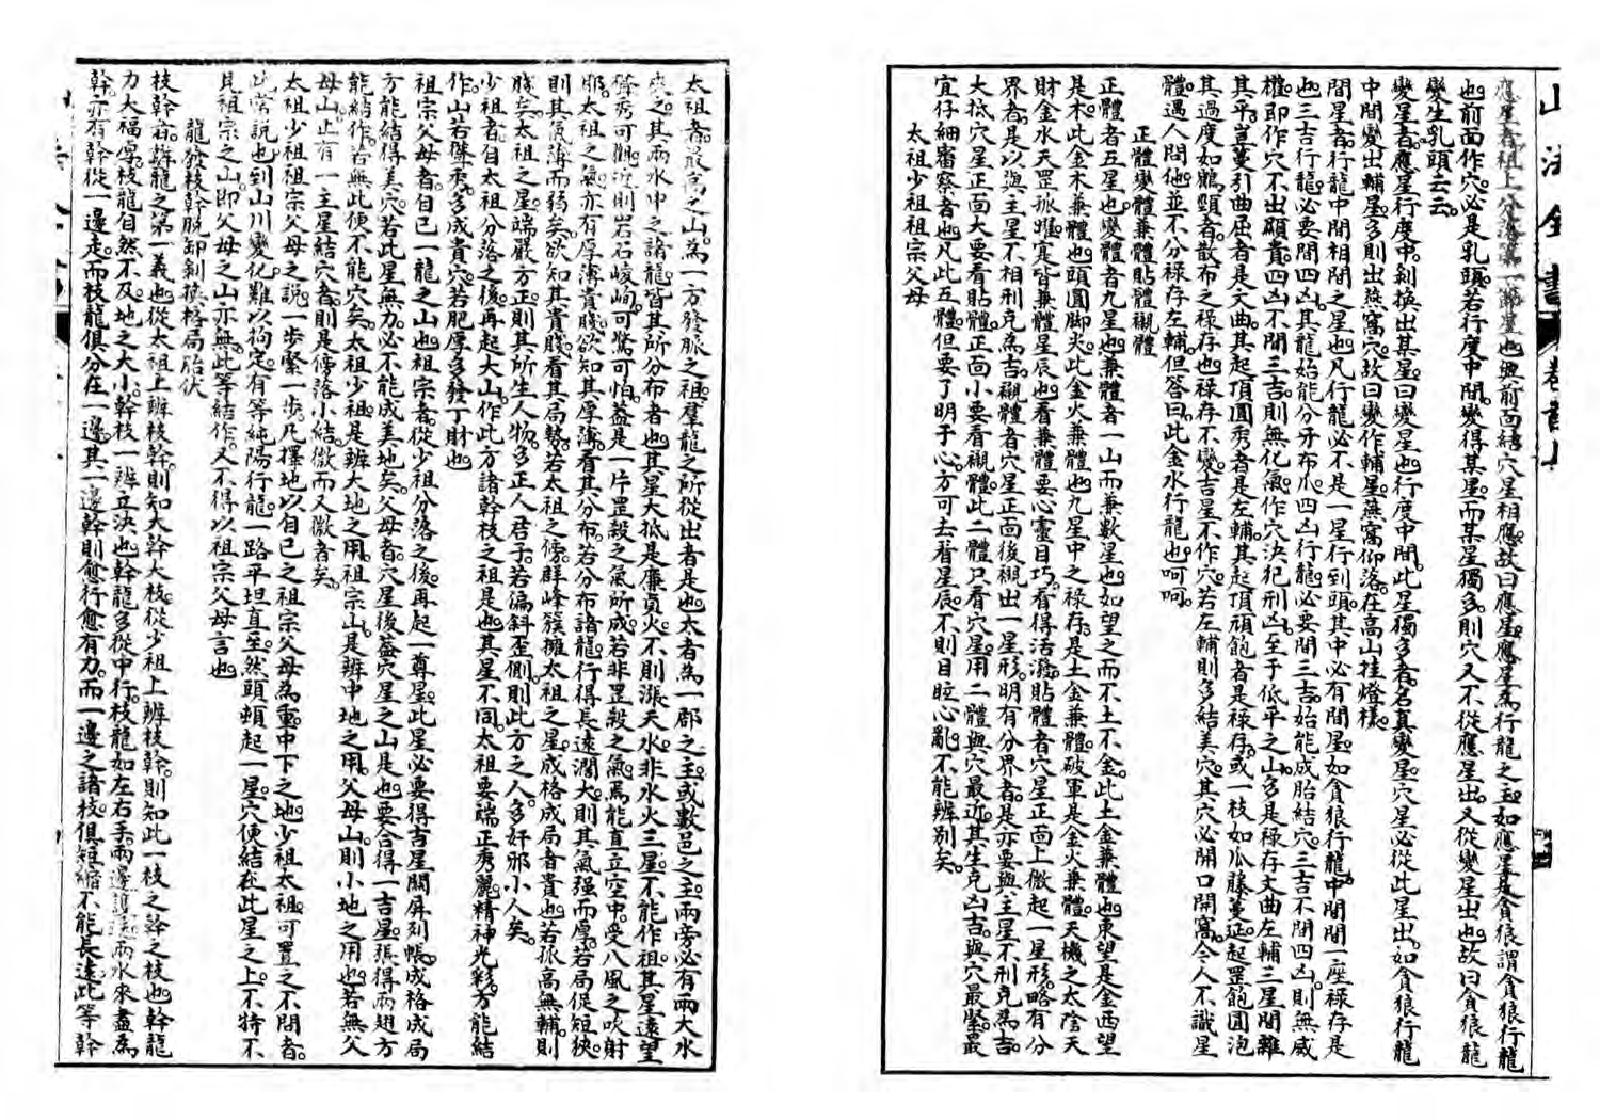 山洋全書 卷首上
應星者祖上分落第一節星也與前面結穴星相應故曰應星應星為行龍之主如應星是貪狼謂貪狼行龍
也前面作穴必是乳頭若行度中間變得某星而某星獨多則穴又不從應星出又從變星出也故曰貪狼龍
變生乳頭云云
變星者應星行度中剝換出某星曰變星也行度中間此星獨多者名真變星穴星必從此星出如貪狼行龍
中間變出輔星多則出燕窩穴故曰變作輔星燕窩仰落在高山挂燈樣
間星者行龍中間相間之星也凡行龍必不是一星行到頭其中必有間星如貪狼行龍中間間一座祿存是
也三吉行龍必要間四凶其龍始能分牙布爪四凶行龍必要間三吉始能成胎結穴三吉不間四凶則無威
權即作穴不出顯貴四凶不間三吉則無化氣作穴決犯刑凶至于低平之山多是祿存文曲左輔三星間雜
其平岡蔓引曲屈者是文曲其起頂圓秀者是左輔其起頂頑飽者是祿存或一枝如瓜藤蔓延起罡飽圓泡
其過度如鵝頸者散布之祿存也祿存不變吉星不作穴若左輔則多結美穴其穴必開口開窩今人不識星
體遇人問他並不分祿存左輔但答曰此金水行龍也呵呵
正體變體兼體貼體襯體
正體者五星也變體者九星也兼體者一山而兼數星也如望之而不土不金此土金兼體也東望是金西望
是木此金木兼體也頭圓腳尖此金火兼體也九星中之祿存是土金兼體破軍是金火兼體天機之太陰天
財金水天罡孤曜寔皆兼體星辰也看兼體要心靈目巧看得活潑貼體者穴星正面上微起一星形略有分
界者是以與主星不相刑克為吉襯體者穴星正面後襯出一星形明有分界者是亦要與主星不刑克為吉
大抵穴星正面大要看貼體正面小要看襯體此二體只看穴星用二體與穴最近其生克凶吉與穴最緊最
宜仔細審察者也凡此五體但要了明于心方可去看星辰不則目眩心亂不能辨別矣
太祖少祖祖宗父母
太祖者最高之山為一方發脈之祖羣龍之所從出者是也太者為一郡之主或數邑之主兩旁必有兩大水
夾之其兩水中之諸龍皆其所分布者也其星大抵是廉貞火不則漲天水非水火三星不能作祖其星遠望
聳秀可觀近則岩石峻峋可驚可怕蓋是一片罡殺之氣所成若非罡殺之氣焉能直立空中受八風之吹射
耶太祖之氣亦有厚薄貴賤欲知其厚薄看其分布若分布諸龍行得長遠濶大則其氣强而厚若局促短狹
則其氣薄而弱矣欲知其貴賤看其局勢若太祖之傍群峰簇擁太祖之星成格成局者貴也若孤高無輔則
賤矣太祖之星端嚴方正則其所生人物多正人君子若偏斜歪側則此方之人多奸邪小人矣
少祖者自太祖分落之後再起大山作此方諸幹枝之祖是也其星不同太祖要端正秀麗精神光彩方能結
作山若聳秀多成貴穴若肥厚多發丁財也
祖宗父母者自己一龍之山也祖宗者從少祖分落之後再起一尊星此星必要得吉星開屏列帳成格成局
方能結得美穴若此星無力必不能成美地矣父母者穴星後蓋穴星之山是也要合得一吉星張得兩翅方
能結作若無此便不能穴矣太祖少祖是辨大地之用祖宗山是辨中地之用父母山則小地之用也若無父
母山止有一主星結穴者則是傍落小結微而又微者矣
太祖少祖祖宗父母之說一步緊一步凡擇地以自己之祖宗父母為重中下之地少祖太祖可置之不問者
此常說也到山川變化難以拘定有等純陽行龍一路平坦直至然頭頓起一星穴便結在此星之上不特不
見祖宗之山即父母之山亦無此等結作又不得以祖宗父母言也
龍發枝幹脫卸剝換格局胎伏
枝幹者辨龍之第一義也從太祖上辨枝幹則知大幹大枝從少祖上辨枝幹則知此一枝之幹之枝也幹龍
力大福厚枝龍自然不及地之大小幹枝一辨立決也幹龍多從中行枝龍如左右手兩邊護送兩水來盡為
幹亦有幹從一邊走而枝龍俱分在一邊其一邊幹則愈行愈有力而一邊之諸枝俱短縮不能長遠此等幹